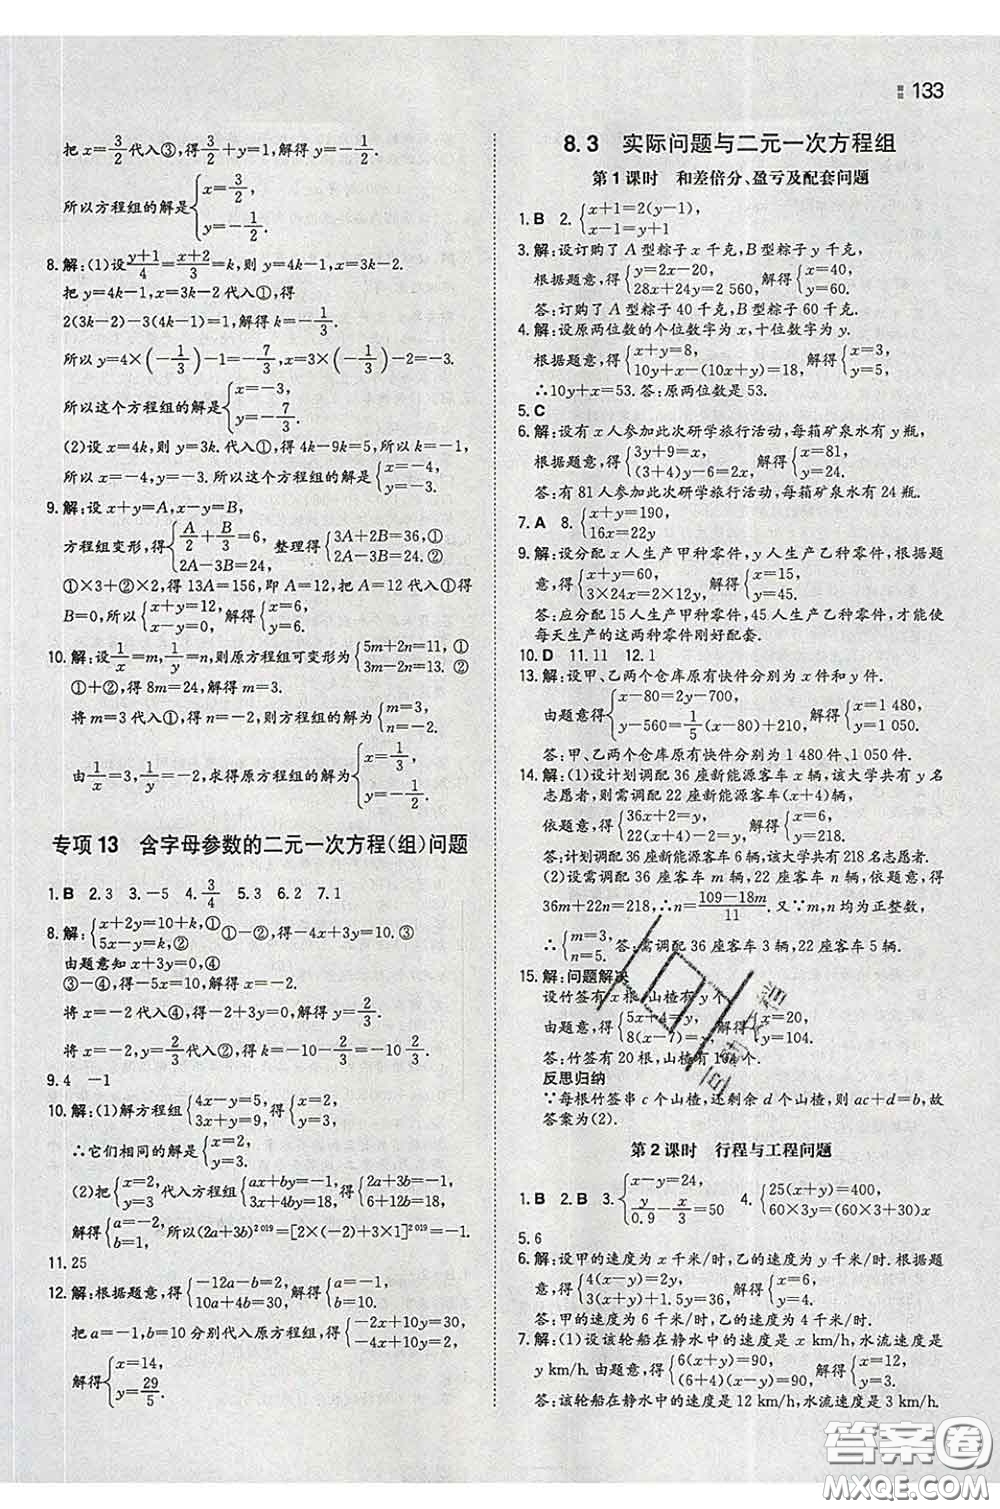 133
把 x=3/2 代入③,得 3/2+y=1,解得 y=-1/2.
所以方程组的解是{x=3/2, y=-1/2.
8.解:(1)设 (y+1)/4=(x+2)/3=k,则 y=4k-1,x=3k-2.
把 y=4k-1,x=3k-2 代入①,得
2(3k-2)-3(4k-1)=1,解得 k=-1/3.
所以 y=4×(-1/3)-1=-7/3,x=3×(-1/3)-2=-3.
所以这个方程组的解是{x=-3, y=-7/3.
(2)设 x=4k,则 y=3k.代入①,得 4k-9k=5,所以 k=-1,
所以 x=-4,y=-3.所以这个方程组的解是{x=-4, y=-3.
9.解:设 x+y=A,x-y=B,
方程组变形,得{A/2+B/3=6, 2A-3B=24, 整理得{3A+2B=36,① 2A-3B=24.②
①×3+②×2,得 13A=156,即 A=12,把 A=12 代入①,得
B=0,所以{x+y=12, x-y=0, 解得{x=6, y=6.
10.解:设 1/x=m,1/y=n,则原方程组可变形为{5m+2n=11,① 3m-2n=13.②
①+②,得 8m=24,解得 m=3.
将 m=3 代入①,得 n=-2,则方程组的解为{m=3, n=-2.
由 1/x=3,1/y=-2,求得原方程组的解为{x=1/3, y=-1/2.
专项 13 含字母参数的二元一次方程(组)问题
1.B 2.3 3.-5 4.3/4 5.3 6.2 7.1
8.解:{x+2y=10+k,① 5x-y=k,② ①-②,得-4x+3y=10.③
由题意知 x+3y=0,④
③-④,得-5x=10,解得 x=-2.
将 x=-2 代入④,得-2+3y=0,解得 y=2/3.
将 x=-2,y=2/3 代入②,得 k=-10-2/3=-32/3.
9.4 -1
10.解:(1)解方程组{4x-y=5, 3x+y=9, 得{x=2, y=3.
∴它们相同的解是{x=2, y=3.
(2)把{x=2, y=3 代入方程组{ax+by=-1, 3ax+4by=18, 得{2a+3b=-1, 6a+12b=18,
解得{a=-2, b=1. 所以(2a+3b)²⁰¹⁹=[2×(-2)+3×1]²⁰¹⁹=-1.
11.25
12.解:根据题意,得{-12a-b=2, 10a+4b=30, 解得{a=-1, b=10.
把 a=-1,b=10 分别代入原方程组,得{-2x+10y=30, -4x+10y=2.
解得{x=14, y=29/5.
8.3 实际问题与二元一次方程组
第 1 课时 和差倍分、盈亏及配套问题
1.B 2.{x+1=2(y-1), x-1=y+1
3.解:设订购了 A 型粽子 x 千克,B 型粽子 y 千克,
根据题意,得{y=2x-20, 28x+24y=2 560, 解得{x=40, y=60.
答:订购了 A 型粽子 40 千克,B 型粽子 60 千克.
4.解:设原两位数的个位数字为 x,十位数字为 y.
根据题意,得{x+y=8, 10y+x-(10x+y)=18, 解得{x=3, y=5.
∴10y+x=53.答:原两位数是 53.
5.C
6.解:设有 x 人参加此次研学旅行活动,每箱矿泉水有 y 瓶,
根据题意,得{3y+9=x, (3+4)y-6=2x, 解得{x=81, y=24.
答:有 81 人参加此次研学旅行活动,每箱矿泉水有 24 瓶.
7.A 8.{x+y=190, 16x=22y
9.解:设分配 x 人生产甲种零件,y 人生产乙种零件,根据题
意,得{x+y=60, 3×24x=2×12y, 解得{x=15, y=45.
答:应分配 15 人生产甲种零件,45 人生产乙种零件,才能使
每天生产的这两种零件刚好配套.
10.D 11.11 12.1
13.解:设甲、乙两个仓库原有快件分别为 x 件和 y 件.
由题意得{x-80=2y-700, y-560=1/5(x-80)+210, 解得{x=1 480, y=1 050.
答:甲、乙两个仓库原有快件分别为 1 480 件、1 050 件.
14.解:(1)设计划调配 36 座新能源客车 x 辆,该大学共有 y 名
志愿者,则需调配 22 座新能源客车(x+4)辆,
依题意,得{36x+2=y, 22(x+4)-2=y, 解得{x=6, y=218.
答:计划调配 36 座新能源客车 6 辆,该大学共有 218 名志愿者.
(2)设需调配 36 座客车 m 辆,22 座客车 n 辆,依题意,得
36m+22n=218,∴n=(109-18m)/11.又∵m,n 均为正整数,
∴{m=3, n=5. 答:需调配 36 座客车 3 辆,22 座客车 5 辆.
15.解:问题解决
设竹签有 x 根,山楂有 y 个,
由题意,得{5x+4=y, 8(x-7)=y, 解得{x=20, y=104.
答:竹签有 20 根,山楂有 104 个.
反思归纳
∵每根竹签串 c 个山楂,还剩余 d 个山楂,则 ac+d=b,故
答案为(2).
第 2 课时 行程与工程问题
1.B 2.B 3.{x-y=24, y/0.9-x/3=50 4.{25(x+y)=400, 60×3y=(60×3+30)x
5.6
6.解:设甲的速度为 x 千米/时,乙的速度为 y 千米/时.根据题
意,得{4(x-y)=8, 3(x+y)+1.5x=39, 解得{x=6, y=4.
答:甲的速度为 6 千米/时,乙的速度为 4 千米/时.
7.解:(1)设该轮船在静水中的速度是 x km/h,水流速度是
y km/h.由题意,得{6(x+y)=90, (6+4)(x-y)=90, 解得{x=12, y=3.
答:该轮船在静水中的速度是 12 km/h,水流速度是 3 km/h.
答案圈
MXQE.COM